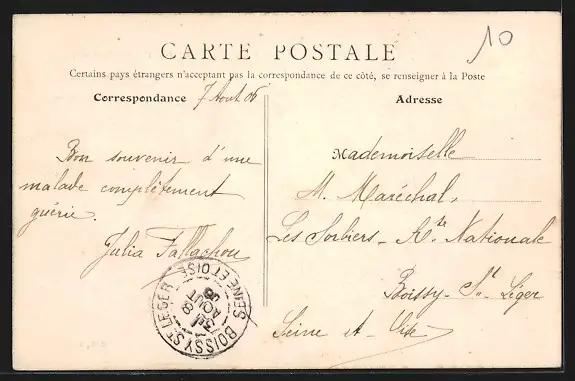 10
CARTE POSTALE
Certains pays étrangers n'acceptant pas la correspondance de ce côté, se renseigner à la Poste
Correspondance 7 Aout 06
Bon souvenir d'une
malade complètement
guérie.
Julia
Adresse
Mademoiselle
M. Maréchal,
Les Sorbiers - Rte Nationale
Boissy-St-Léger
Seine et Oise
BOISSY ST LEGER
SEINE ET OISE
8
AOUT